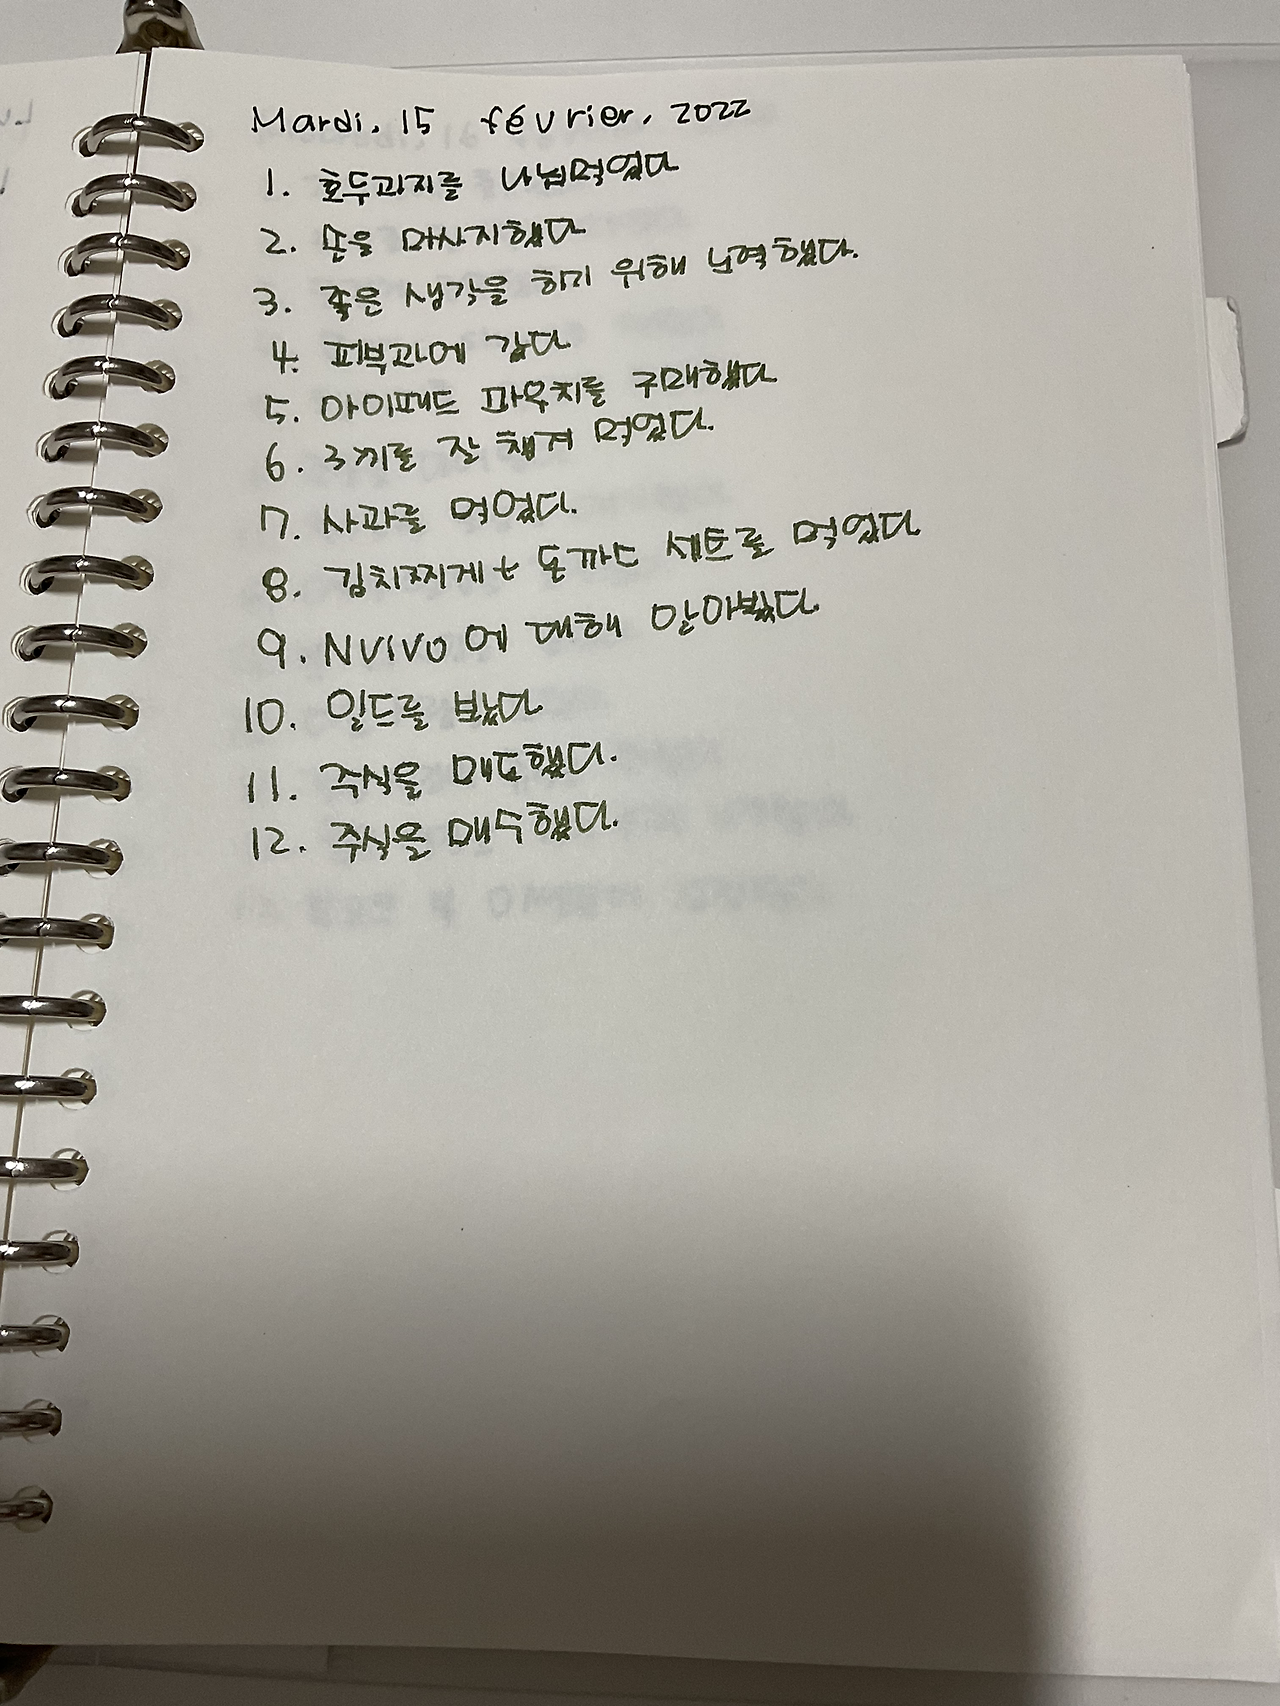 Mardi. 15 février. 2022
1. 호두과자를 나눠먹었다
2. 손을 마사지했다
3. 좋은 생각을 하기 위해 노력했다.
4. 피부과에 갔다
5. 아이패드 파우치를 구매했다
6. 3끼를 잘 챙겨 먹었다.
7. 사과를 먹었다.
8. 김치찌게 + 돈까스 세트를 먹었다
9. NVIVO에 대해 알아봤다
10. 일드를 봤다
11. 주식을 매도했다.
12. 주식을 매수했다.